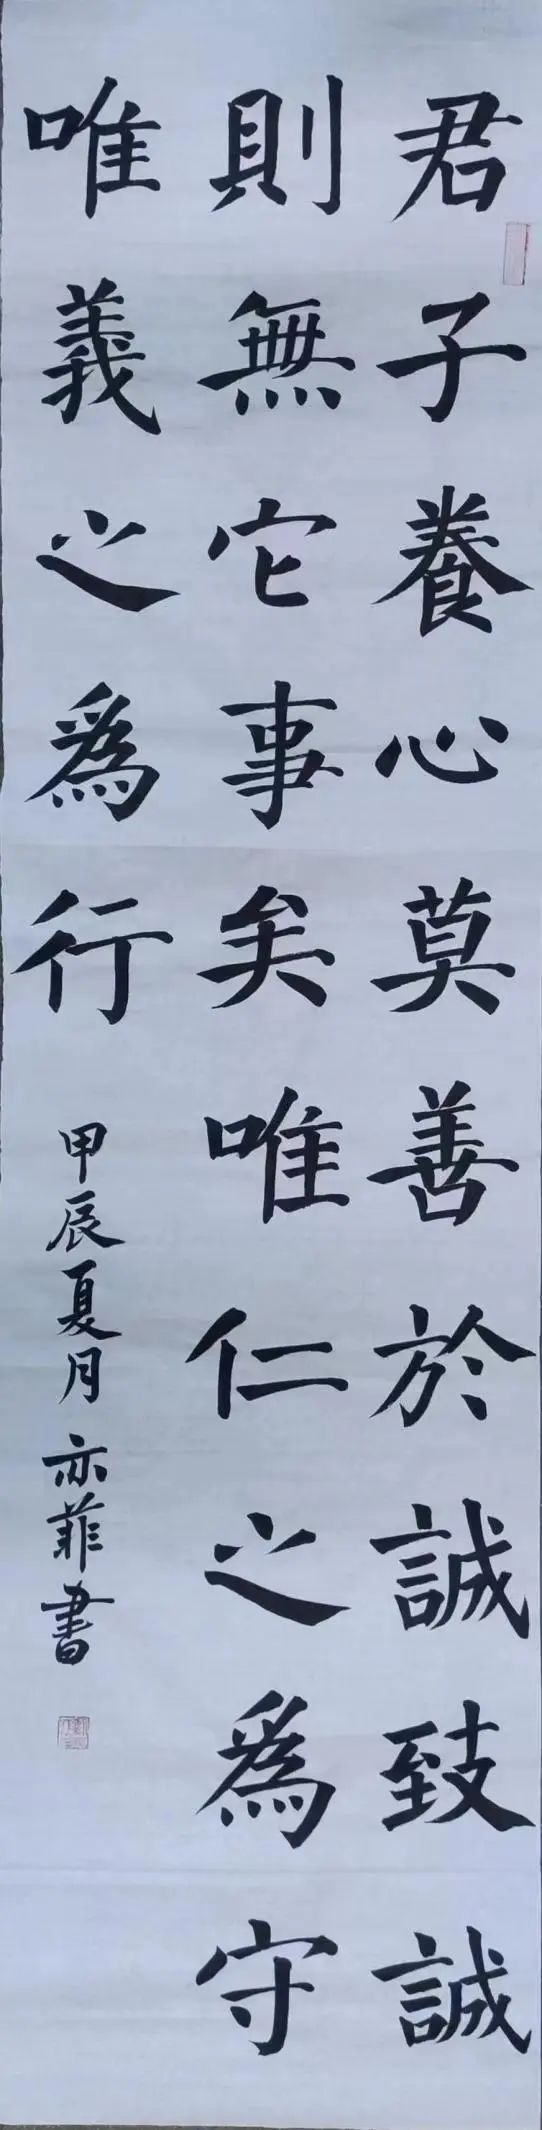 君子養心莫善於誠致誠
則無它事矣唯仁之為守
唯義之為行
甲辰夏月亦菲書